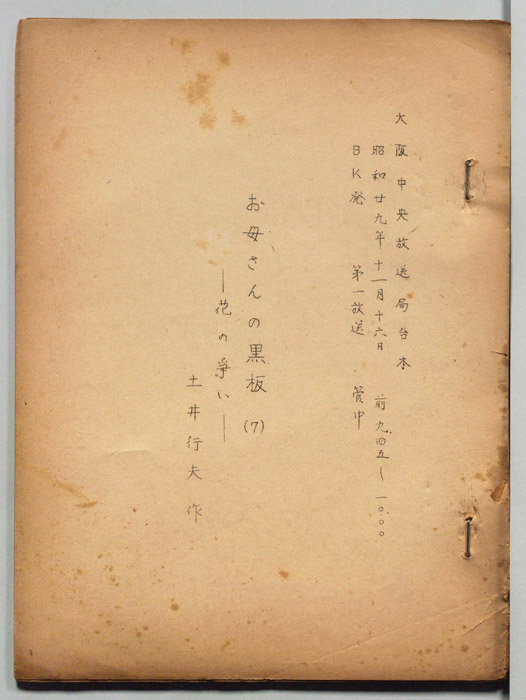 大阪中央放送局台本
昭和廿九年十一月十六日　前九.四五～一〇.〇〇
BK発　第一放送　管中
お母さんの黒板(7)
―花の爭い―
土井行夫 作